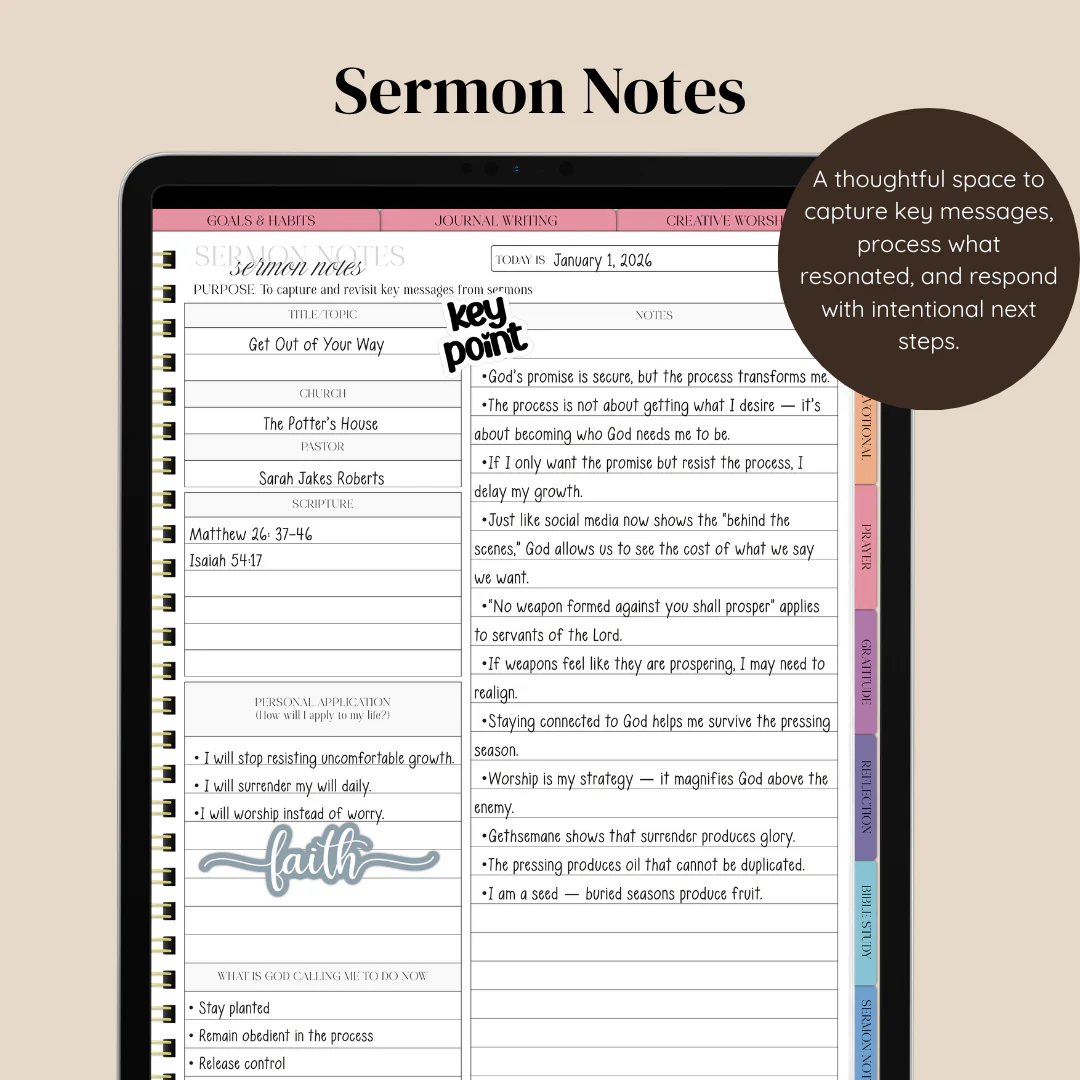 Sermon Notes
A thoughtful space to
capture key messages,
process what
resonated, and respond
with intentional next
steps.
GOALS & HABITS
JOURNAL WRITING
CREATIVE WORSH
SERMON NOTES
sermon notes
TODAY IS: January 1, 2026
PURPOSE: To capture and revisit key messages from sermons
key
point
TITLE/TOPIC
Get Out of Your Way
CHURCH
The Potter's House
PASTOR
Sarah Jakes Roberts
SCRIPTURE
Matthew 26: 37-46
Isaiah 54:17
PERSONAL APPLICATION
(How will I apply to my life?)
• I will stop resisting uncomfortable growth.
• I will surrender my will daily.
•I will worship instead of worry.
faith
WHAT IS GOD CALLING ME TO DO NOW
• Stay planted
• Remain obedient in the process
• Release control
NOTES
•God's promise is secure, but the process transforms me.
•The process is not about getting what I desire — it's
about becoming who God needs me to be.
•If I only want the promise but resist the process, I
delay my growth.
•Just like social media now shows the "behind the
scenes," God allows us to see the cost of what we say
we want.
•"No weapon formed against you shall prosper" applies
to servants of the Lord.
•If weapons feel like they are prospering, I may need to
realign.
•Staying connected to God helps me survive the pressing
season.
•Worship is my strategy — it magnifies God above the
enemy.
•Gethsemane shows that surrender produces glory.
•The pressing produces oil that cannot be duplicated.
•I am a seed — buried seasons produce fruit.
VOTIONAL
PRAYER
GRATITUDE
REFLECTION
BIBLE STUDY
SERMON NOT